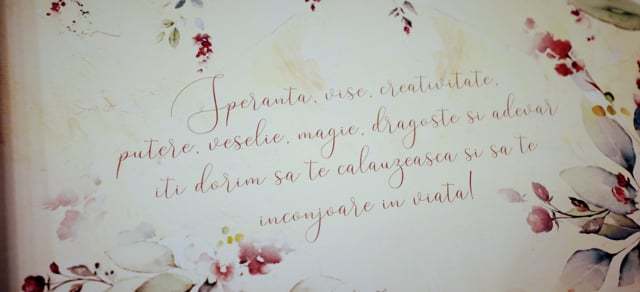 Speranta, vise, creativitate,
putere, veselie, magie, dragoste si adevar
iti dorim sa te calauzeasca si sa te
inconjoare in viata!